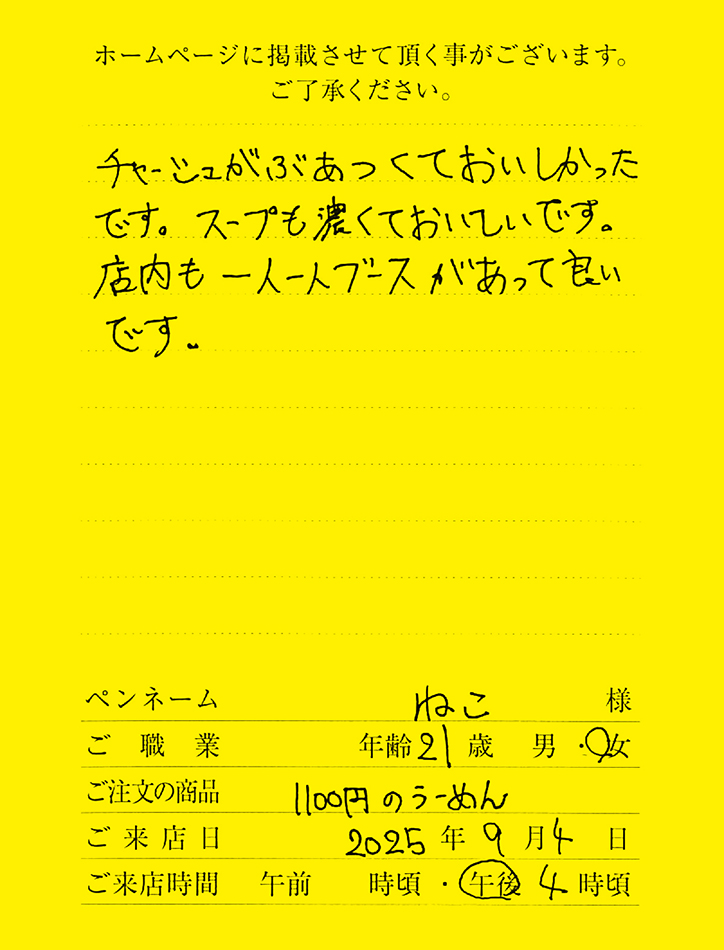 ホームページに掲載させて頂く事がございます。
ご了承ください。
チャーシュがぶあつくておいしかった
です。スープも濃くておいしいです。
店内も一人一人ブースがあって良い
です。
ペンネーム ねこ 様
ご職業 年齢21歳 男・女
ご注文の商品 1100円のらーめん
ご来店日 2025年9月4日
ご来店時間 午前 時頃・午後4時頃